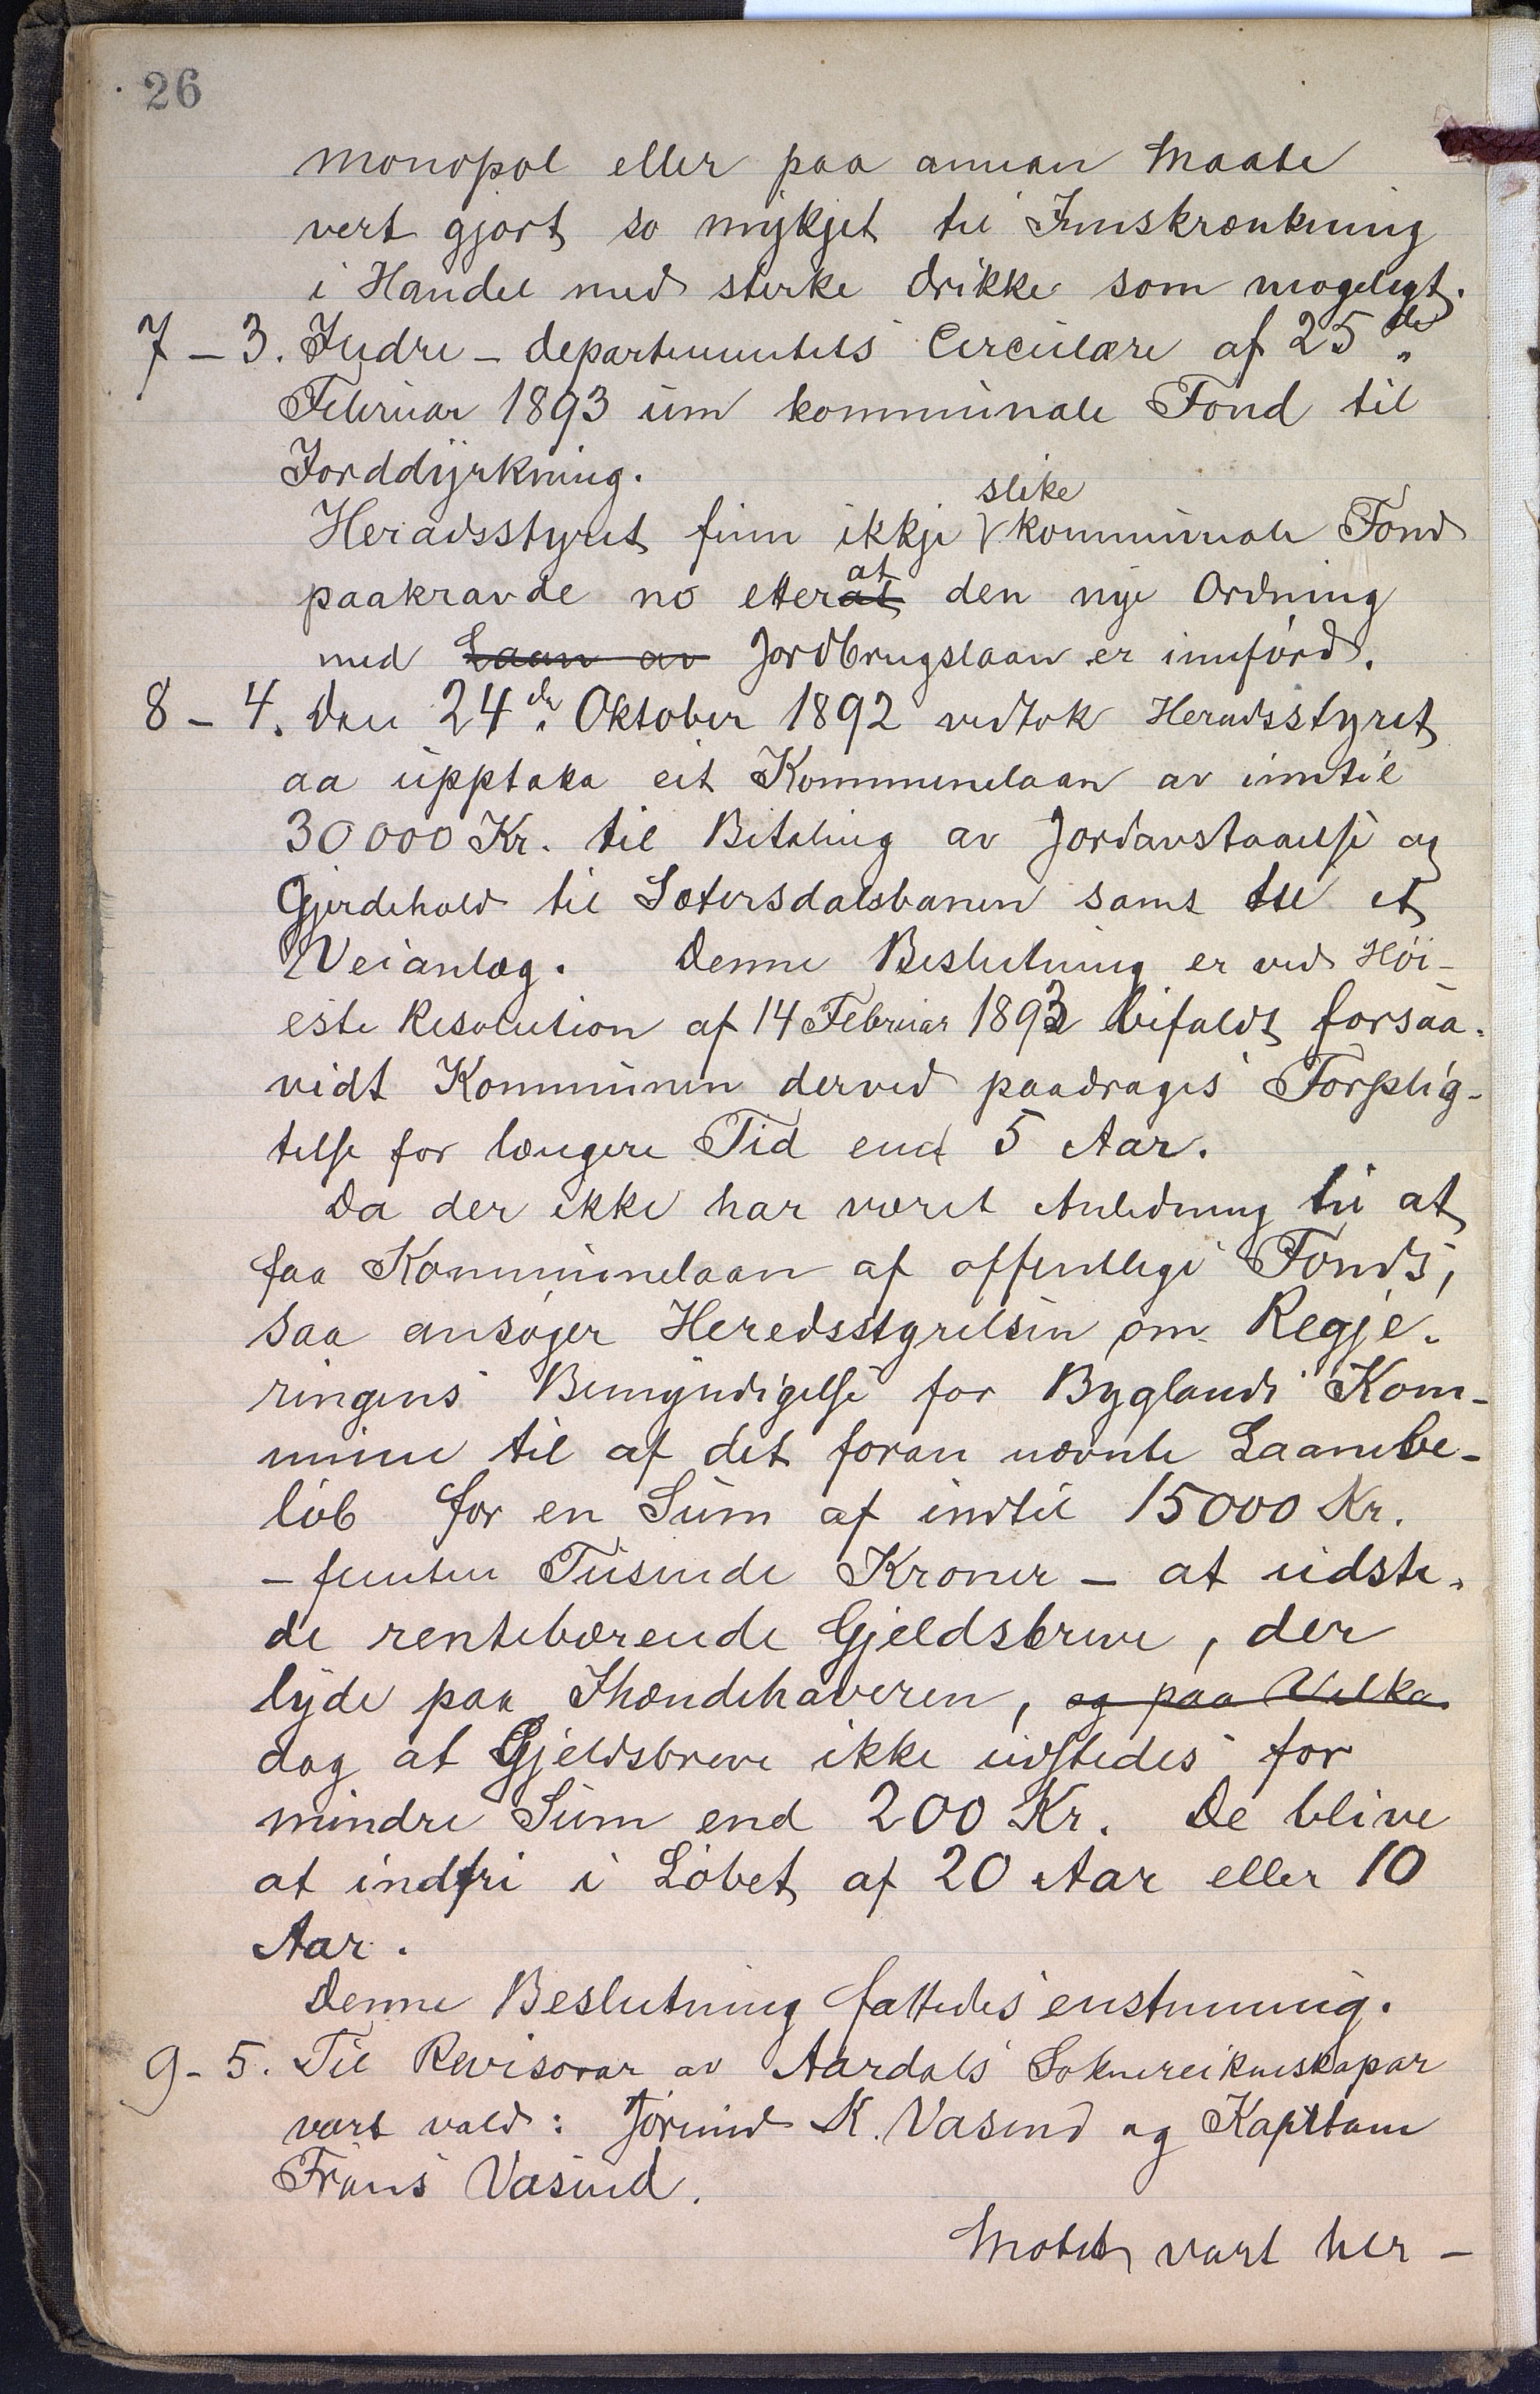 26
monopol eller paa annan Maate
vert gjort so mykjet til Innskrænkning
i Handel med sterke drikke som mogelegt.
7-3. Indre-departementets Circulære af 25de
Februar 1893 um kommunale Fond til
Jorddyrkning.
Heradsstyret finn ikkje slike kommunale Fond
paakravde no etter at at den nye Ordning
med Laan av Jordbrugslaan er innførd.
8-4. Den 24de Oktober 1892 vedtok Heradsstyret
aa upptaka eit Kommunelaan av inntil
30000 Kr. til Betaling av Jordavstaaelse og
Gjerdehold til Sætersdalsbanen samt til et
Veianlæg. Denne Beslutning er ved Höi-
este Resolution af 14 Februar 1893 bifaldt forsaa-
vidt Kommunen derved paadrages Forplig-
telse for længere Tid end 5 Aar.
Da der ikke har været Anledning til at
faa Kommunelaan af offentlige Fonds,
saa ansøger Heredsstyrelsen om Regje-
ringens Bemyndigelse for Byglands Kom-
mune til af det foran nævnte Laanebe-
løb for en Sum af indtil 15000 Kr.
- femten Tusinde Kroner - at udste-
de rentebærende Gjeldsbreve, der
lyde paa Ihændehaveren, og paa Vilkaa
dog at Gjeldsbreve ikke udstedes for
mindre Sum end 200 Kr. De blive
at indfri i Løbet af 20 Aar eller 10
Aar.
Denne Beslutning fattedes enstemmig.
9-5. Til Revisorar av Aardals Soknereikneskapar
vart vald: Jørund K. Vasend og Kaptein
Frans Vasend.
Møtet vart her-